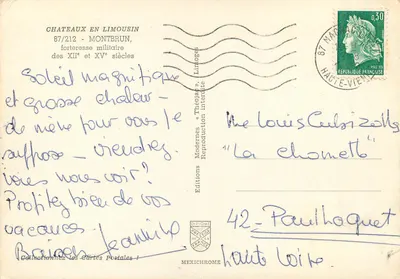 CHATEAUX EN LIMOUSIN
87/212 - MONTBRUN,
forteresse militaire
des XIIᵉ et XVᵉ siècles
Soleil magnifique
et grosse chaleur -
de même pour vous je
suppose - viendrez
vous nous voir?
Profitez bien de vos
vacances.
Baisers Jeannine
Collectionnez les Cartes Postales !
Editions Modernes « Théojac », Limoges
Reproduction interdite
MEXICHROME
0,30
REPUBLIQUE FRANÇAISE
87
HAUTE-VIENNE
Louis
"La
42 -
Haute Loire